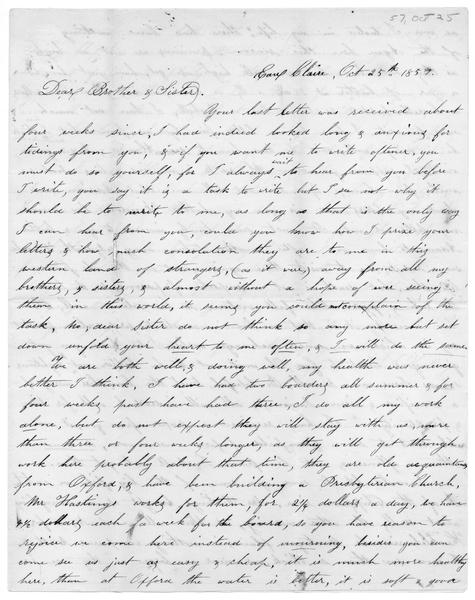 57, OCT 25
Eau Claire, Oct 25th 1857.
Dear Brother & Sister,
Your last letter was received about
four weeks since, I had indied looked long & anxious for
tidings from you, & if you want me to write oftener, you
must do so yourself, for I always wait to hear from you before
I write, you say it is a task to write but I see not why it
should be to write to me, as long as that is the only way
I can hear from you, could you know how I prize your
letters & how much consolation they are to me in this
western land of strangers, (as it were,) away from all my
brothers, & sisters, & almost without a hope of ever seeing
them in this world, it seems you could not complain of the
task, No, dear Sister do not think so any more but set
down unfold your heart to me often, & I will do the same.
We are both well, & doing well, my health was never
better I think, I have had two boarders all summer & for
four weeks past have had three, I do all my work
alone, but do not expect they will stay with us, more
than three or four weeks longer, as they will get through
work here probably about that time, they are old acquaintances
from Oxford, & have been building a Presbyterian Church,
Mr Hastings works for them, for 2¼ dollars a day, we have
dollars each a week for the board, so you have reason to
rejoice we come here instead of mourning, besides you can
come see us just as easy & cheap, it is much more healthy
here, than at Oxford the water is better, it is soft & good